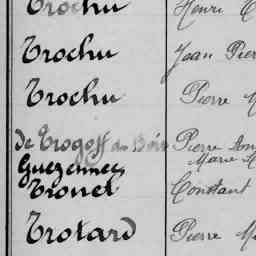 Trochu Henri
Trochu Jean Pier
Trochu Pierre M
de Trogoff du Bois Pierre
Guezennec Marie
Trouet Constant
Trotard Pierre M